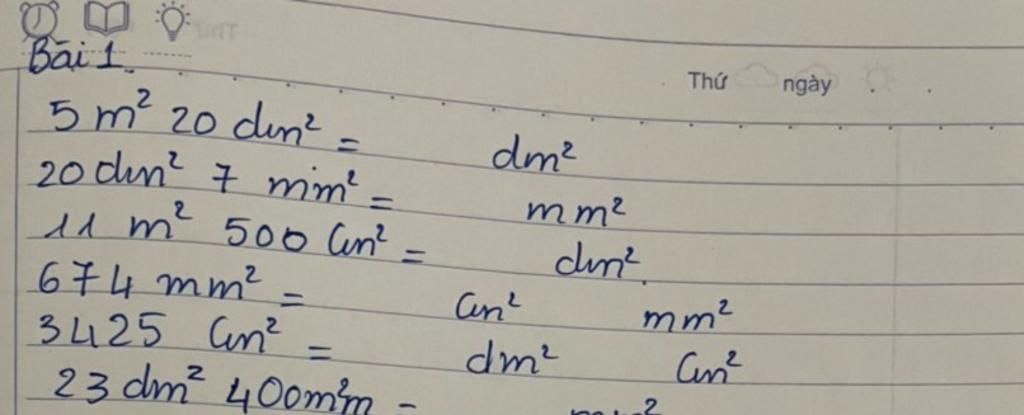 Bài 1
Thứ ngày
5 m² 20 dm² = dm²
20 dm² 7 mm² = mm²
11 m² 500 cm² = dm²
674 mm² = cm² mm²
3425 cm² = dm² cm²
23 dm² 400 mm² = mm²